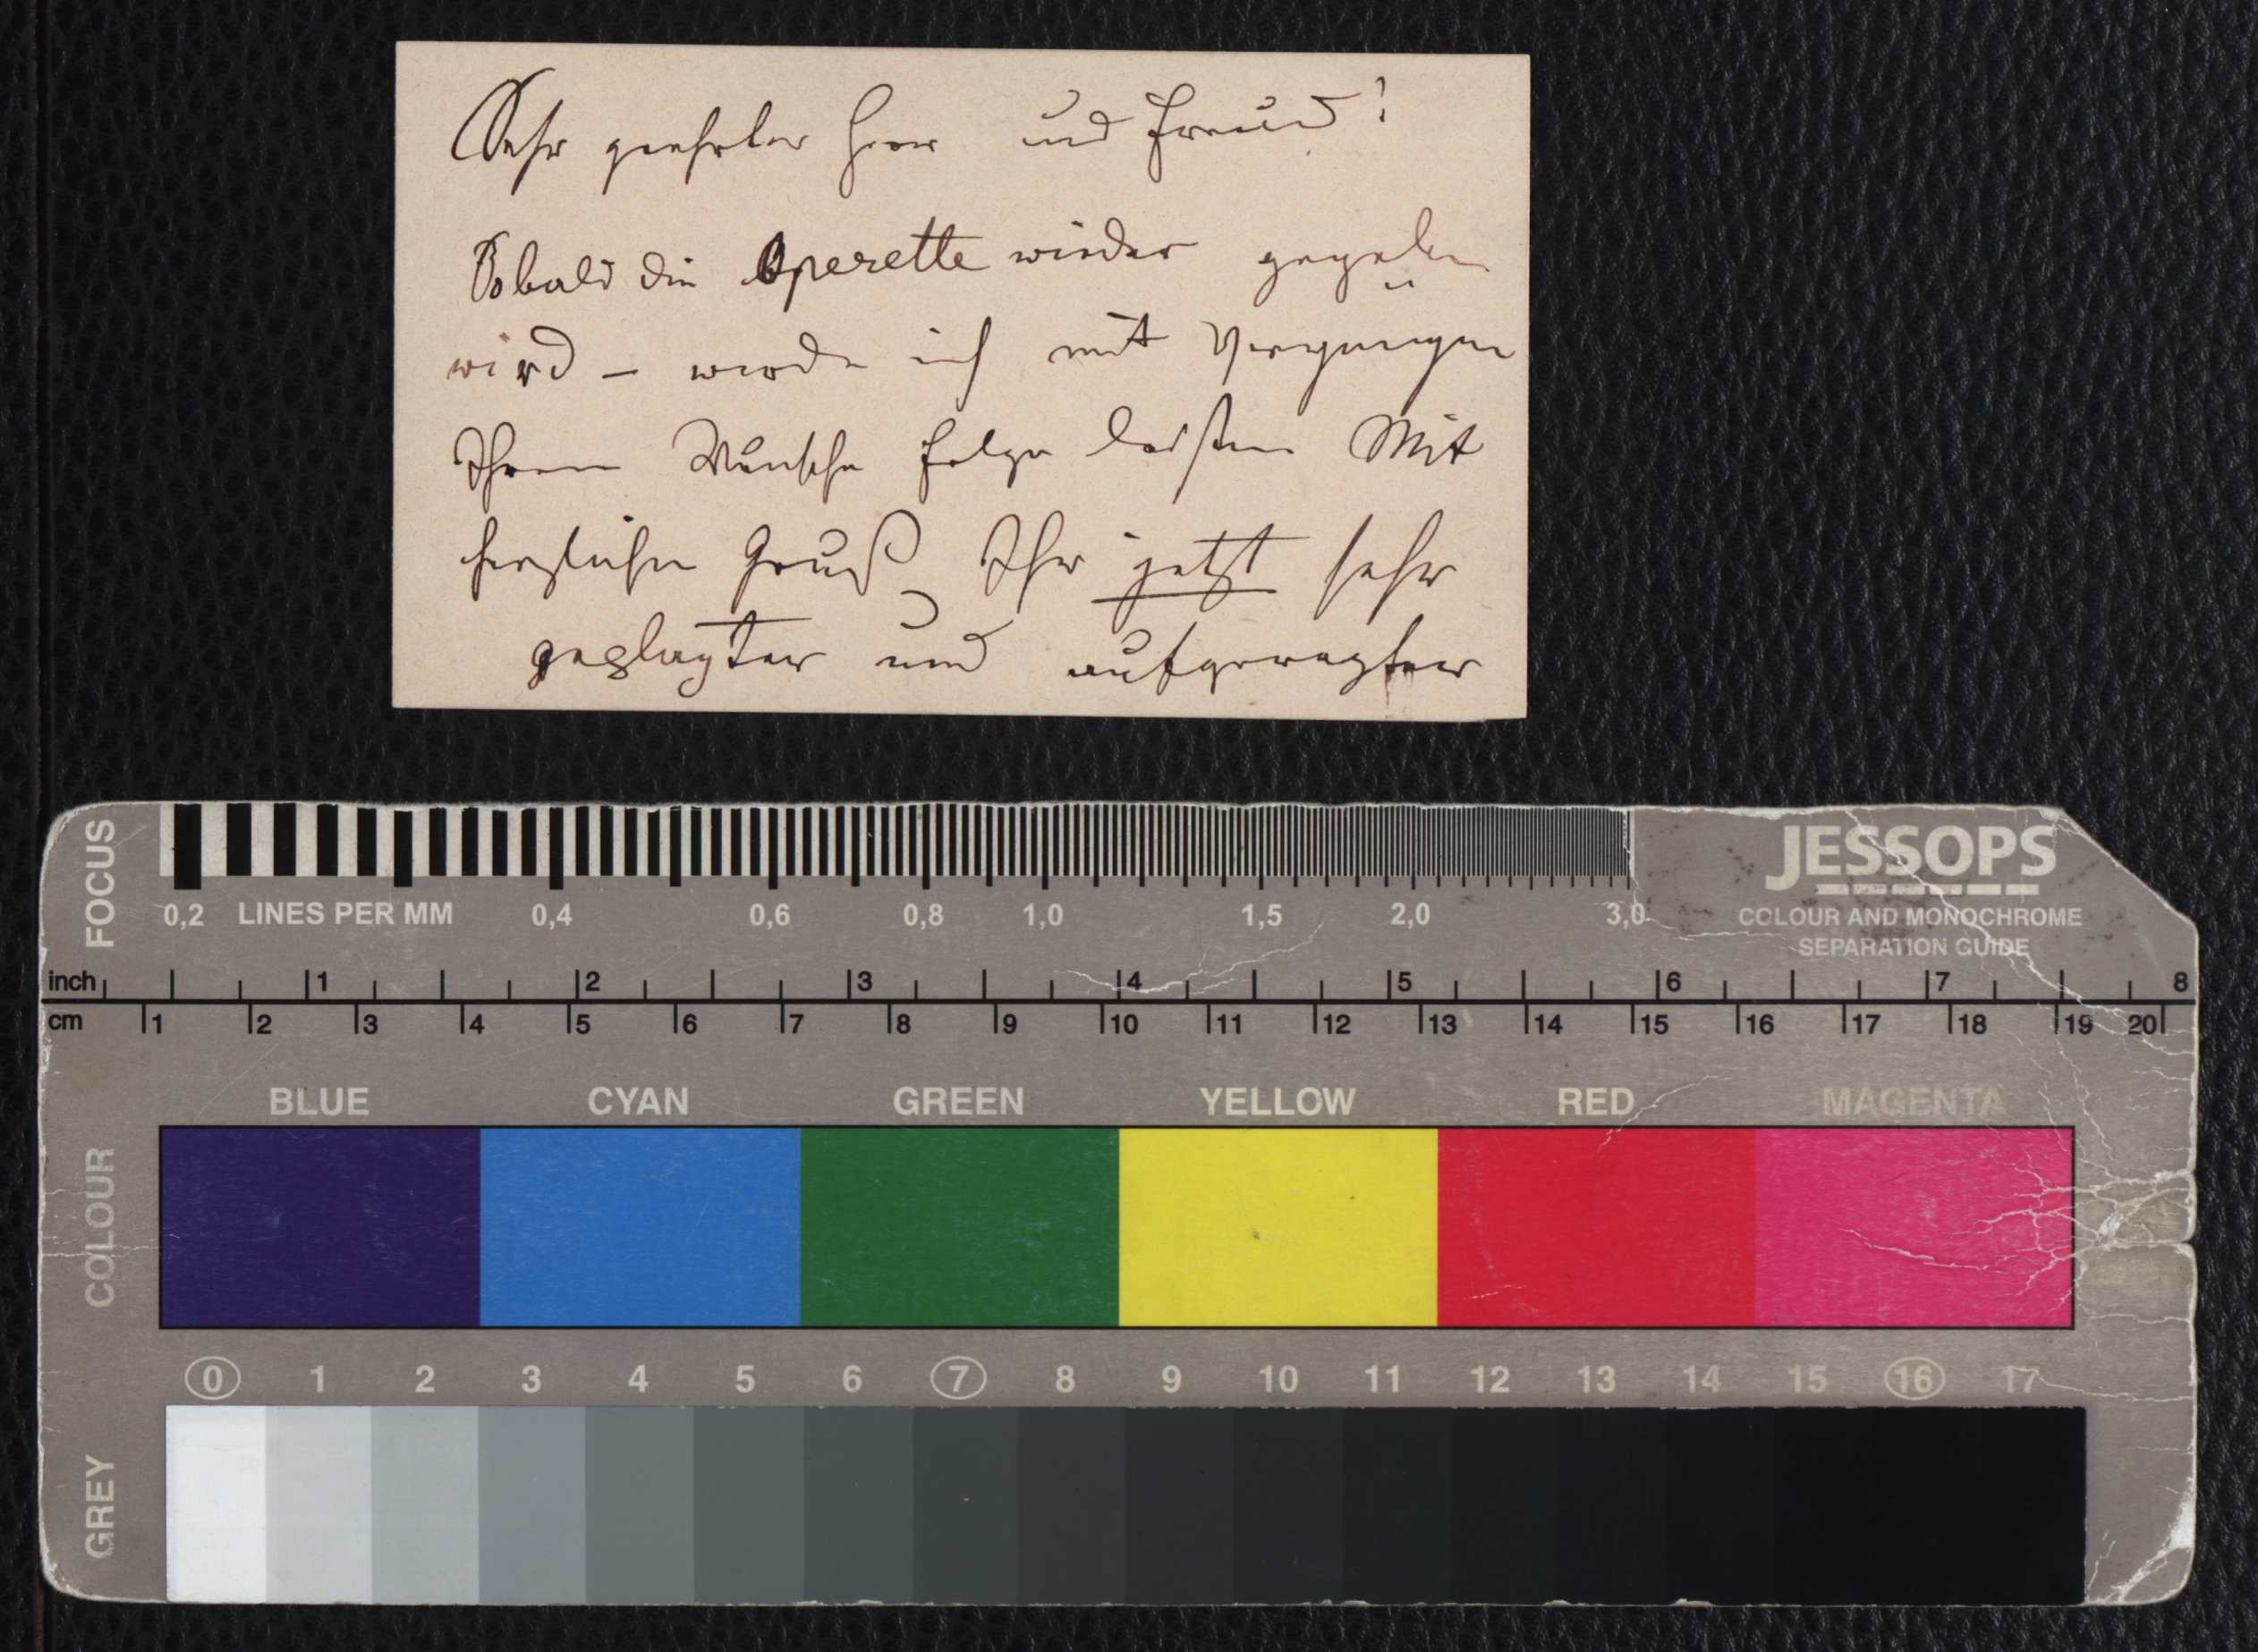 Sehr geehrter Herr und Freund!
Sobald die Operette wieder gegeben
wird – werde ich mit Vergnügen
Ihrem Wunsche Folge leisten Mit
herzlichen Gruß Ihr jetzt sehr
geplagter und aufgeregter
FOCUS
JESSOPS
0,2 LINES PER MM 0,4 0,6 0,8 1,0 1,5 2,0 3,0
COLOUR AND MONOCHROME
SEPARATION GUIDE
inch 1 2 3 4 5 6 7 8
cm 1 2 3 4 5 6 7 8 9 10 11 12 13 14 15 16 17 18 19 20
BLUE CYAN GREEN YELLOW RED MAGENTA
COLOUR
0 1 2 3 4 5 6 7 8 9 10 11 12 13 14 15 16 17
GREY